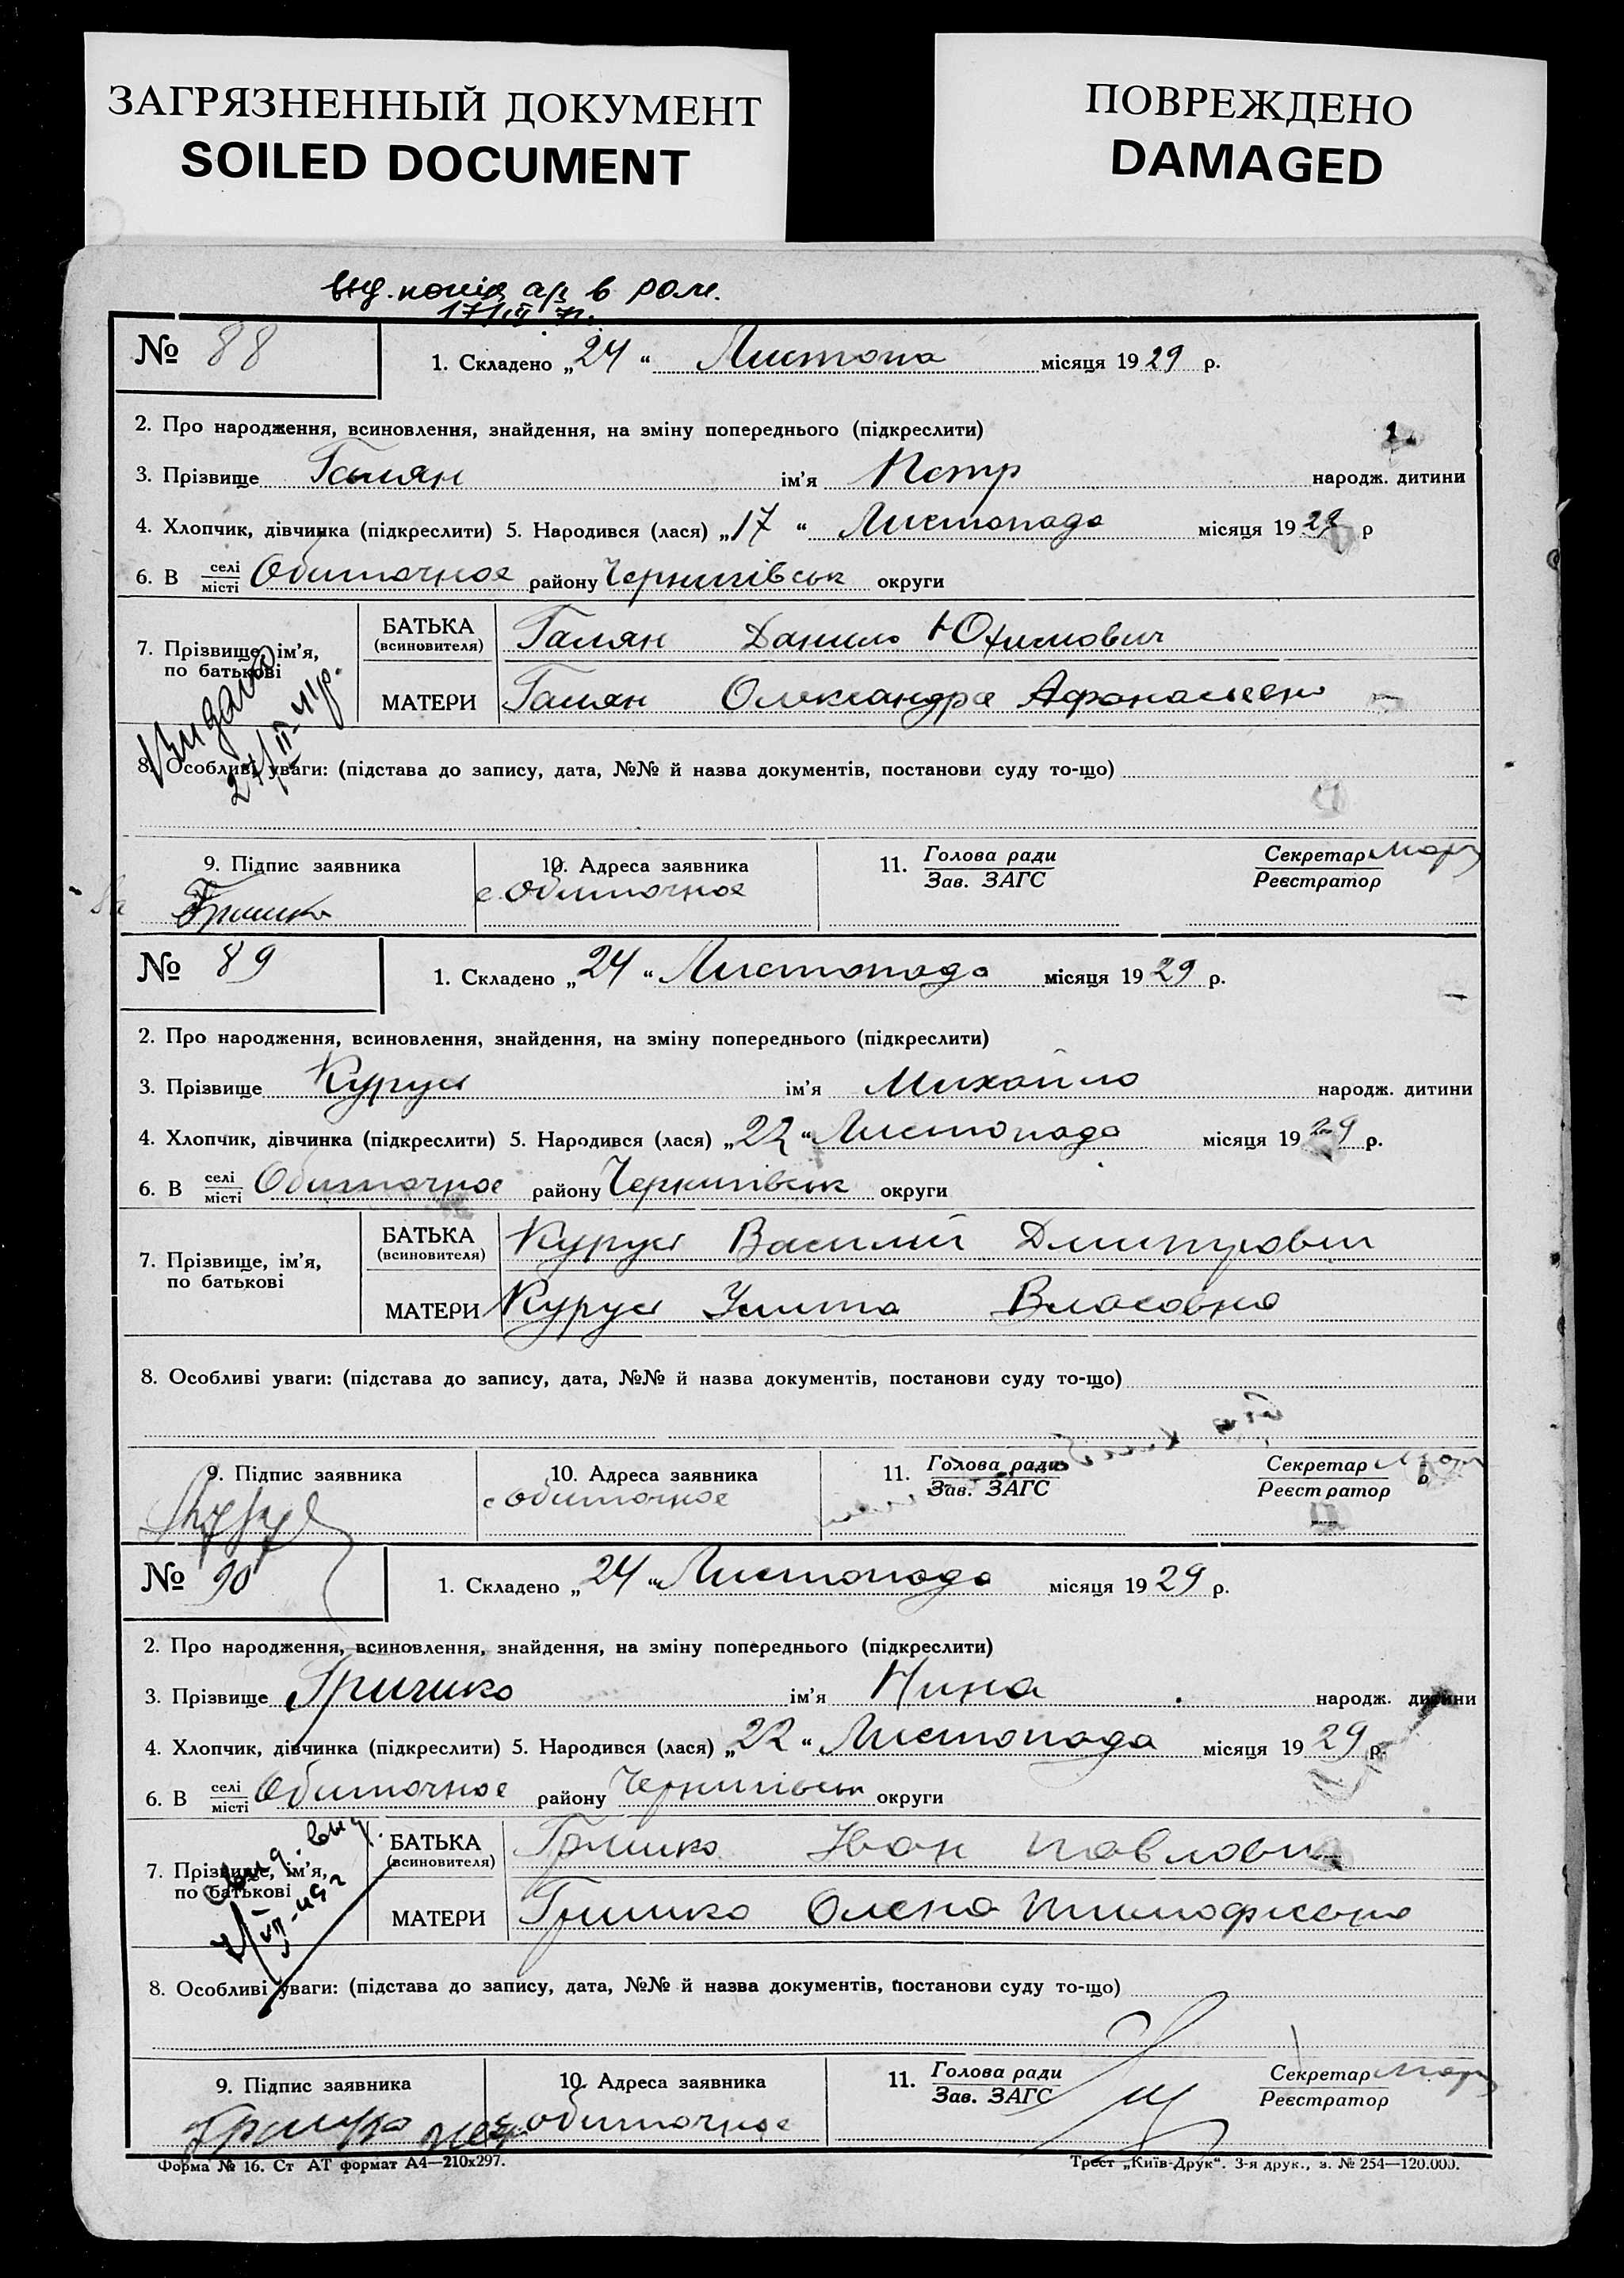 ЗАГРЯЗНЕННЫЙ ДОКУМЕНТ
SOILED DOCUMENT
ПОВРЕЖДЕНО
DAMAGED
№ 88
1. Складено „24“ Листопа місяця 1929 р.
2. Про народження, всиновлення, знайдення, на зміну попереднього (підкреслити)
3. Прізвище Галян ім’я Петр народж. дитини
4. Хлопчик, дівчинка (підкреслити) 5. Народився (лася) „17“ Листопада місяця 1929 р
6. В селі місті Обиточное району Чернигівськ округи
7. Прізвище, ім’я, по батькові
БАТЬКА (всиновителя) Галян Данило Юхимович
МАТЕРИ Галян Олександра
Видано
8. Особливі уваги: (підстава до запису, дата, №№ й назва документів, постанови суду то-що)
9. Підпис заявника
10. Адреса заявника
с Обиточное
11. Голова ради
Зав. ЗАГС
Секретар
Реєстратор
№ 89
1. Складено „24“ Листопада місяця 1929 р.
2. Про народження, всиновлення, знайдення, на зміну попереднього (підкреслити)
3. Прізвище ім’я Михайло народж. дитини
4. Хлопчик, дівчинка (підкреслити) 5. Народився (лася) „22“ Листопада місяця 1929 р.
6. В селі місті Обиточное району Чернигівськ округи
7. Прізвище, ім’я, по батькові
БАТЬКА (всиновителя) Василий Дмитрович
МАТЕРИ Власовна
8. Особливі уваги: (підстава до запису, дата, №№ й назва документів, постанови суду то-що)
9. Підпис заявника
10. Адреса заявника
с Обиточное
11. Голова ради
Зав. ЗАГС
Секретар
Реєстратор
№ 90
1. Складено „24“ Листопада місяця 1929 р.
2. Про народження, всиновлення, знайдення, на зміну попереднього (підкреслити)
3. Прізвище ім’я Нина народж. дитини
4. Хлопчик, дівчинка (підкреслити) 5. Народився (лася) „22“ Листопада місяця 1929 р.
6. В селі місті Обиточное району Чернигівськ округи
7. Прізвище, ім’я, по батькові
БАТЬКА (всиновителя) Гришко Іван Павлович
МАТЕРИ Гришко Олена
8. Особливі уваги: (підстава до запису, дата, №№ й назва документів, постанови суду то-що)
9. Підпис заявника
10. Адреса заявника
с Обиточное
11. Голова ради
Зав. ЗАГС
Секретар
Реєстратор
Форма № 16. Ст АТ формат А4—210х297.
Трест „Київ-Друк“. 3-я друк., з. № 254—120.000.